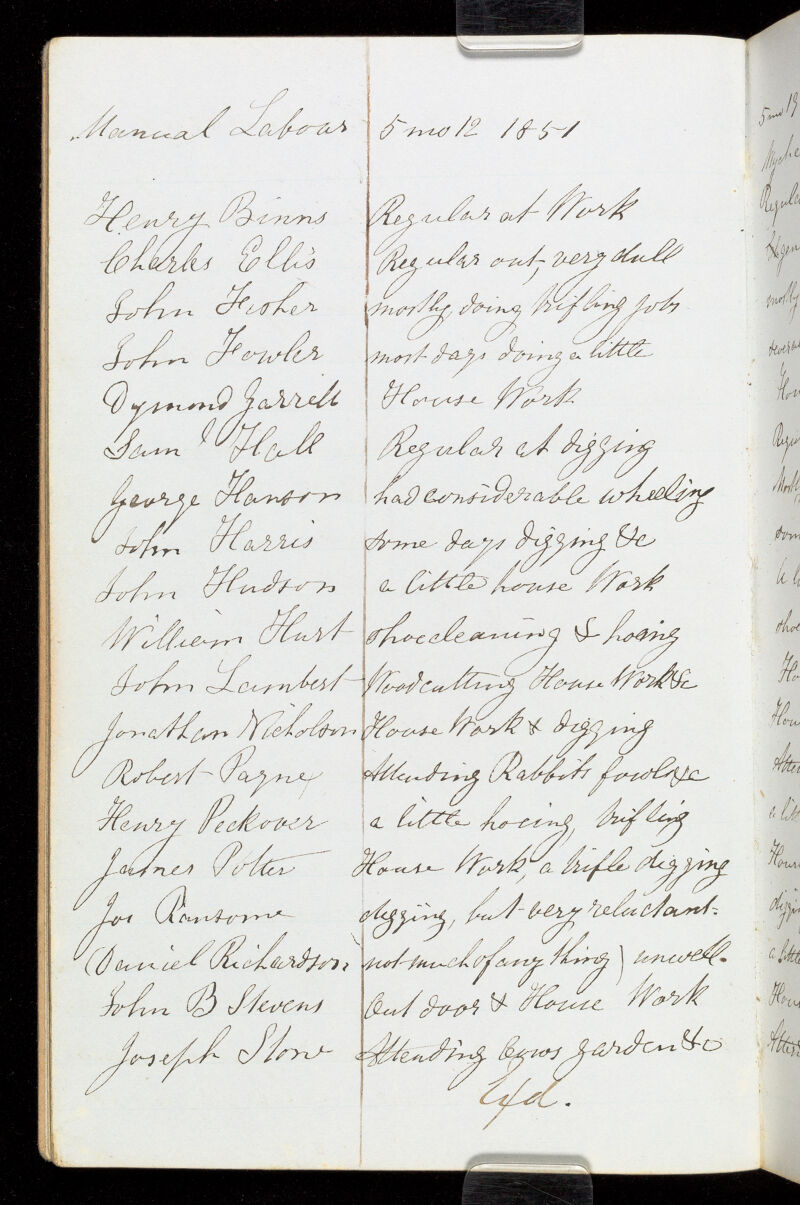 Manual Labour 5 mo 12 1851
Henry Binns Regular at Work
Charles Ellis Regular out, very dull
John Fisher mostly doing trifling jobs
John Fowler most days doing a little
Dymond Garrett House Work
Saml Hall Regular at digging
George Hanson had considerable wheeling
John Harris some days digging &c
John Hudson a little house Work
William Hurt shoecleaning & hoeing
John Lambert Woodcutting House Work &c
Jonathan Nicholson House Work & digging
Robert Payne Attending Rabbits fowls &c
Henry Peckover a little hoeing, trifling
James Potter House Work, a trifle digging
Jos Ransome digging, but very reluctant.
(Daniel Richardson not much of any thing) unwell.
John B Stevens Out door & House Work
Joseph Stone Attending Cows garden &c
Exd.
5 mo 19